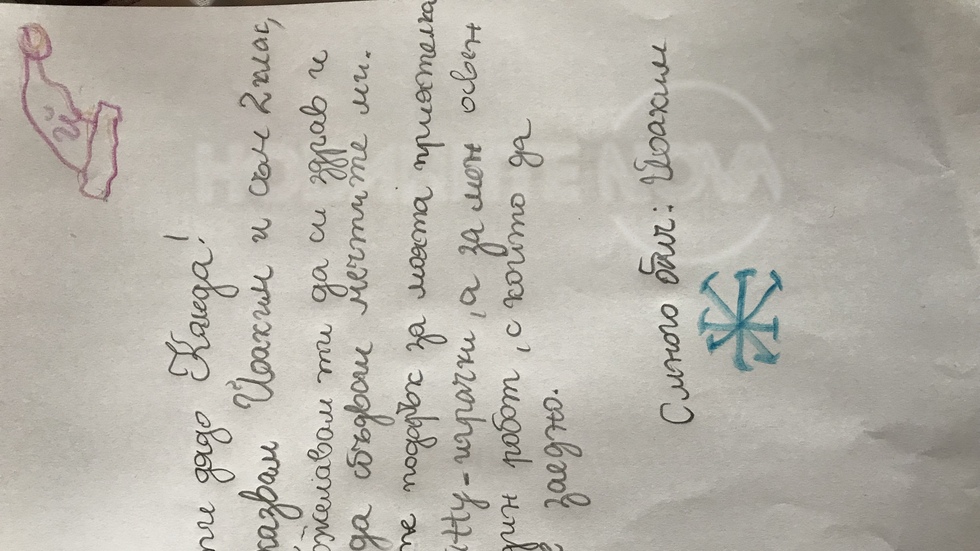 й
ти дядо Коледа!
казвам Йоахим и съм 2 клас,
ожелавам ти да си здрав и
да сбъдваш мечтите ми.
те подарък за моята приятелка
itty-играчки, а за мен освен
дин робот, с който да
е заедно.
С много обич: Йоахим